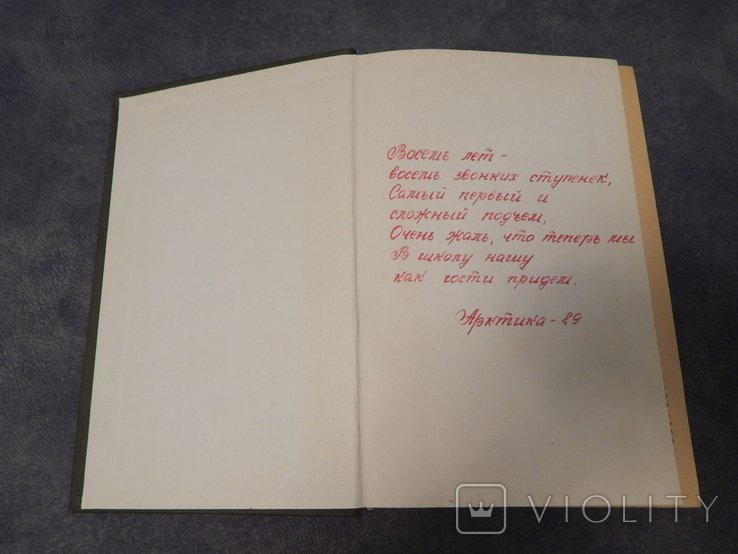 Восемь лет -
восемь звонких ступенек,
Самый первый и
сложный подъем,
Очень жаль, что теперь мы
В школу нашу
как гости придем.
Арктика - 89
VIOLITY